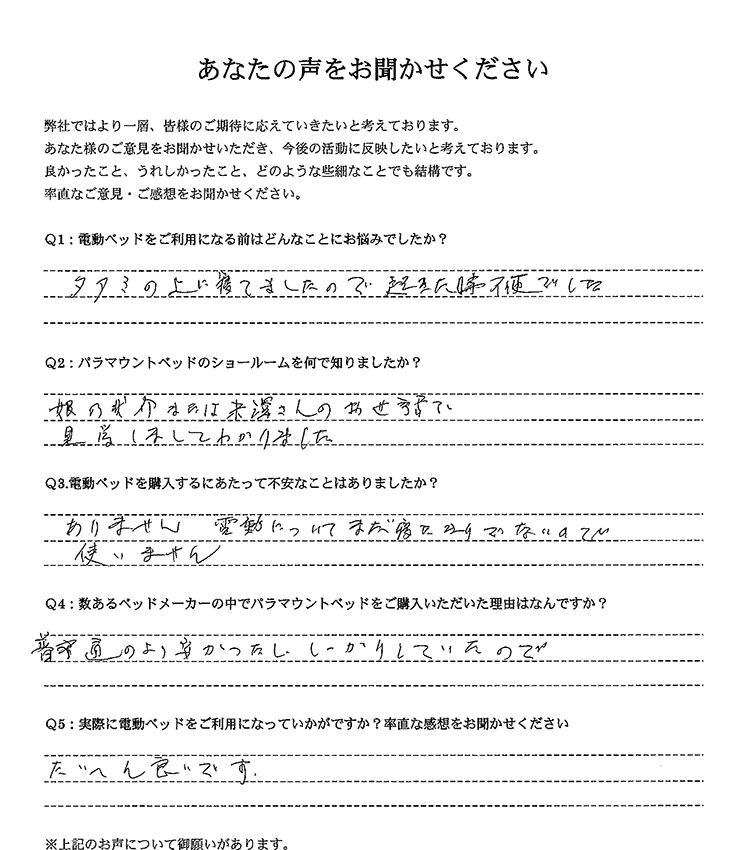 あなたの声をお聞かせください
弊社ではより一層、皆様のご期待に応えていきたいと考えております。
あなた様のご意見をお聞かせいただき、今後の活動に反映したいと考えております。
良かったこと、うれしかったこと、どのような些細なことでも結構です。
率直なご意見・ご感想をお聞かせください。
Q1：電動ベッドをご利用になる前はどんなことにお悩みでしたか？
タタミの上に寝てましたので 起きた時不便でした
Q2：パラマウントベッドのショールームを何で知りましたか？
娘の紹介または米澤さんのお世話で
見学しましてわかりました
Q3.電動ベッドを購入するにあたって不安なことはありましたか？
ありません 電動についてまだ寝たきりでないので
使いません
Q4：数あるベッドメーカーの中でパラマウントベッドをご購入いただいた理由はなんですか？
普通のより安かったし しっかりしていたので
Q5：実際に電動ベッドをご利用になっていかがですか？率直な感想をお聞かせください
たいへん良いです.
※上記のお声について御願いがあります。